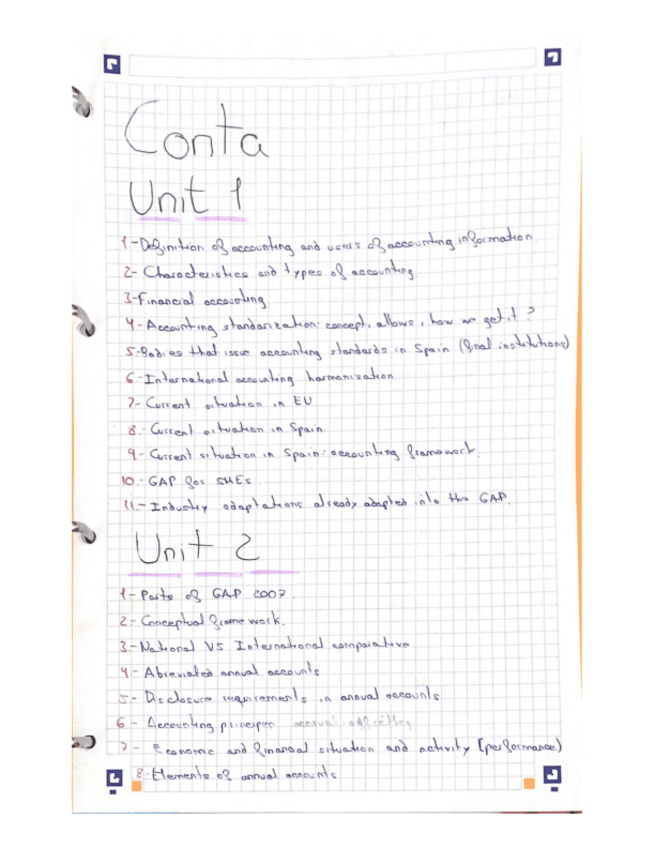 Conta
Unit 1
1-Definition of accounting and users of accounting information
2- Characteristics and types of accounting
3-Financial accounting
4-Accounting standarization: concept, allows, how we get it?
5-Bodies that issue accounting standards in Spain (final institutions)
6-International accounting harmonization
7- Current situation in EU
8.- Current situation in Spain.
9- Current situation in Spain: accounting framework.
10.- GAP for SMEs
11.- Industry adaptations already adapted into the GAP.
Unit 2
1- Parts of GAP 2007.
2- Conceptual framework.
3-National VS International comparative
4- Abreviated annual accounts
5- Disclosure requirements in annual accounts
6 - Accounting principes
7 - Economic and financial situation and activity (performance)
8-Elements of annual accounts